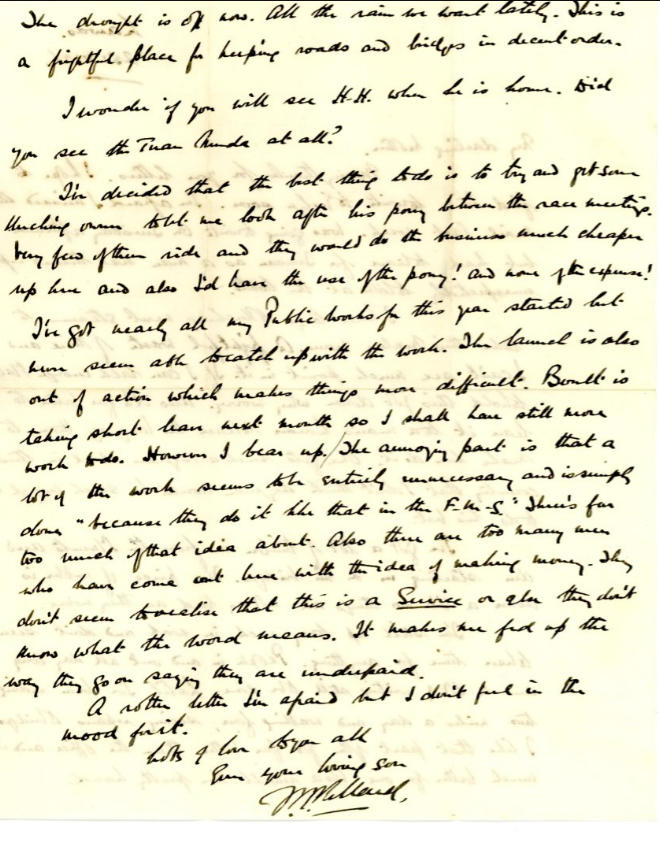 The drought is off now. All the rain we want lately. This is
a frightful place for keeping roads and bridges in decent order.
I wonder if you will see H.H. when he is home. Did
you see the Tuan Muda at all?
I've decided that the best thing to do is to try and get some
Kuching owner to let me look after his pony between the race meetings.
Very few of them ride and they would do the business much cheaper
up here and also I'd have the use of the pony! and none of the expense!
I've got nearly all my Public Works for this year started but
never seem able to catch up with the work. The launch is also
out of action which makes things more difficult. is
taking short leave next month so I shall have still more
work to do. However I bear up./The annoying part is that a
lot of the work seems to be entirely unnecessary and is simply
done "because they do it like that in the F.M.S." There's far
too much of that idea about. Also there are too many men
who have come out here with the idea of making money. They
don't seem to realise that this is a Service or else they don't
know what the word means. It makes me fed up the
way they go on saying they are underpaid.
A rotten letter I'm afraid but I don't feel in the
mood for it.
Lots of love to you all
Ever your loving son